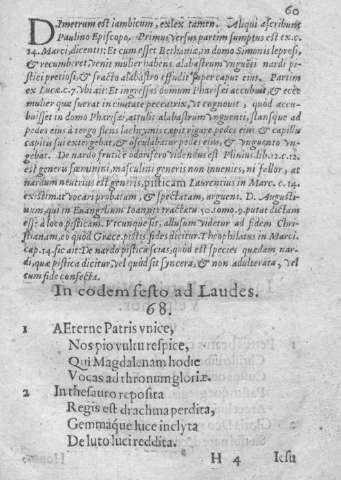 60
Dimetrum est iambicum, exlex tamen. Aliqui ascribunt
Paulino Episcopo. Primus versus partim sumptus est ex c.
14. Marci, dicentis: Et cum esset Bethania, in domo Simonis leprosi,
& recumberet venit mulier habens alabastrum vnguēti nardi pi-
stici pretiosi, & fracto alabastro effudit super caput eius. Partim
ex Luca. c. 7. vbi ait: Et ingressus domum Pharisei accubuit, & ecce
mulier quæ fuerat in ciuitate peccatrix, vt cognouit, quod accu-
buisset in domo Pharisæi, attulit alabastrum vnguenti, stansque ad
pedes eius à tergo flens lachrymis cæpit rigare pedes eius & capillis
capitis sui extergebat, & osculabatur pedes eius, & vnguento vn-
gebat. De nardo frutice odorifero videndus est Plinius lib. 12. c. 12.
est genere fœminini, masculini generis non inuenies, ni fallor, at
nardum neutrius est generis, pisticam Laurentius in Marc. c. 14.
existimat vocari probatam, & spectatam, arguent. D. Augusti-
num, qui in Euangelium Ioannis tractatu 50. tomo. 9. putat dictam
esse à loco pisticam. Vtcunque sit, allusum videtur ad fidem Chri-
stianam, eo quòd Græcè, pistis, fides dicitur. Theophilatus in Marci.
cap. 14. sic ait: De nardo pistica scias, quòd est species quædam nar-
di, quæ pistica dicitur, vel quòd sit syncera, & non adulterata, vel
cum fide confecta.
In eodem festo ad Laudes.
68.
1 AEterne Patris vnice,
Nos pio vultu respice,
Qui Magdalenam hodie
Vocas ad thronum gloriæ.
2 In thesauro reposita
Regis est drachma perdita,
Gemmaque luce inclyta
De luto luci reddita.
H 4 Iesu